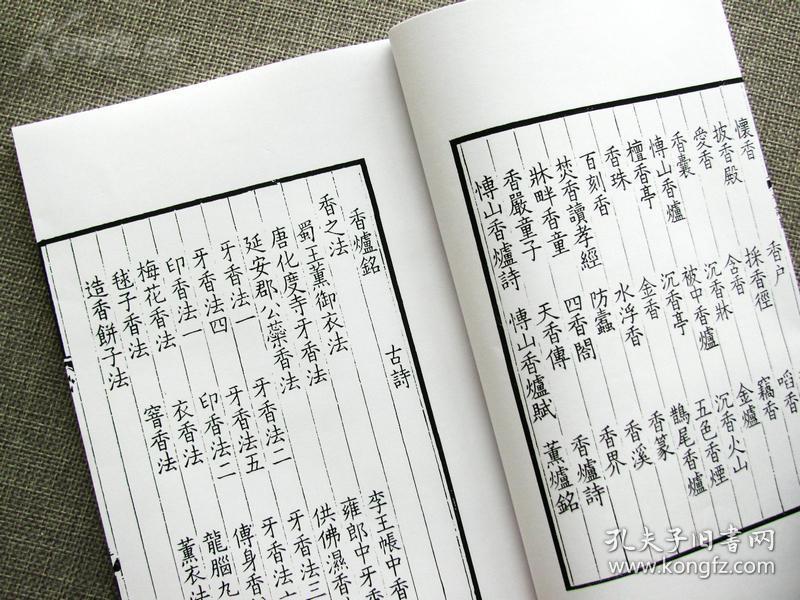 懷香 香戶
披香殿 採香徑 啗香
愛香 含香 竊香
香囊 沉香牀 金爐
博山香爐 被中香爐 沉香火山
檀香亭 沉香亭 五色香煙
香珠 金香 鵲尾香爐
百刻香 水浮香 香篆
焚香讀孝經 防蠹 香溪
牀畔香童 四香閤 香界
香嚴童子 天香傳 香爐詩
博山香爐詩 博山香爐賦 薰爐銘
香爐銘 古詩
香之法
蜀王薰御衣法 李王帳中香
唐化度寺牙香法 雍郎中牙香
延安郡公蘂香法 供佛濕香
牙香法一 牙香法二 牙香法三
牙香法四 牙香法五 牙香法六
印香法一 印香法二 傅身香
梅花香法 衣香法 龍腦九
毬子香法 窨香法 薰衣法
造香餅子法
孔夫子旧书网
www.kongfz.com